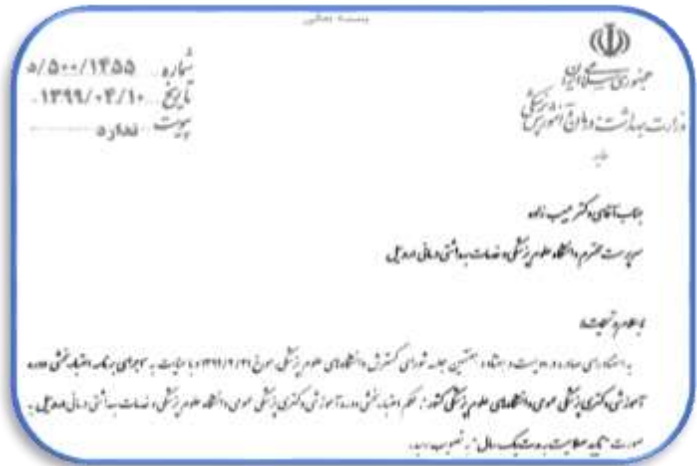 بسمه تعالی
جمهوری اسلامی ایران
وزارت بهداشت، درمان و آموزش پزشکی
شماره ۵/۵۰۰/۱۴۵۵
تاریخ ۱۳۹۹/۰۴/۱۰
پیوست ندارد
جناب آقای دکتر حبیب زاده
سرپرست محترم دانشگاه علوم پزشکی و خدمات بهداشتی درمانی اردبیل
با سلام و تحیت؛
به استناد رای صادره در دویست و هفتاد و هفتمین جلسه شورای گسترش دانشگاه‌های علوم پزشکی مورخ و با عنایت به اجرای برنامه اعتباربخشی دوره
آموزشی دکتری پزشکی عمومی دانشگاه‌های علوم پزشکی کشور، حکم اعتباربخشی دوره آموزشی دکتری پزشکی عمومی دانشگاه علوم پزشکی و خدمات بهداشتی درمانی اردبیل به
صورت "تایید صلاحیت به مدت یک سال" به تصویب رسید.